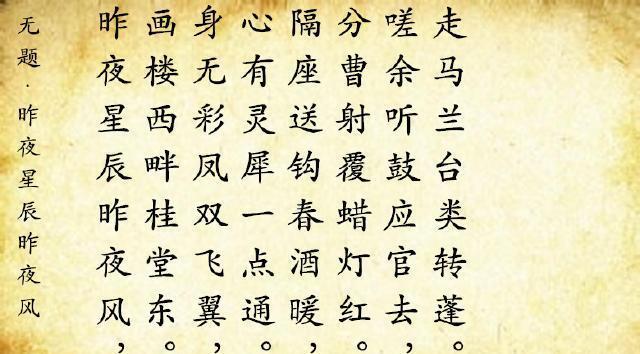 无题·昨夜星辰昨夜风
昨夜星辰昨夜风，
画楼西畔桂堂东。
身无彩凤双飞翼，
心有灵犀一点通。
隔座送钩春酒暖，
分曹射覆蜡灯红。
嗟余听鼓应官去，
走马兰台类转蓬。